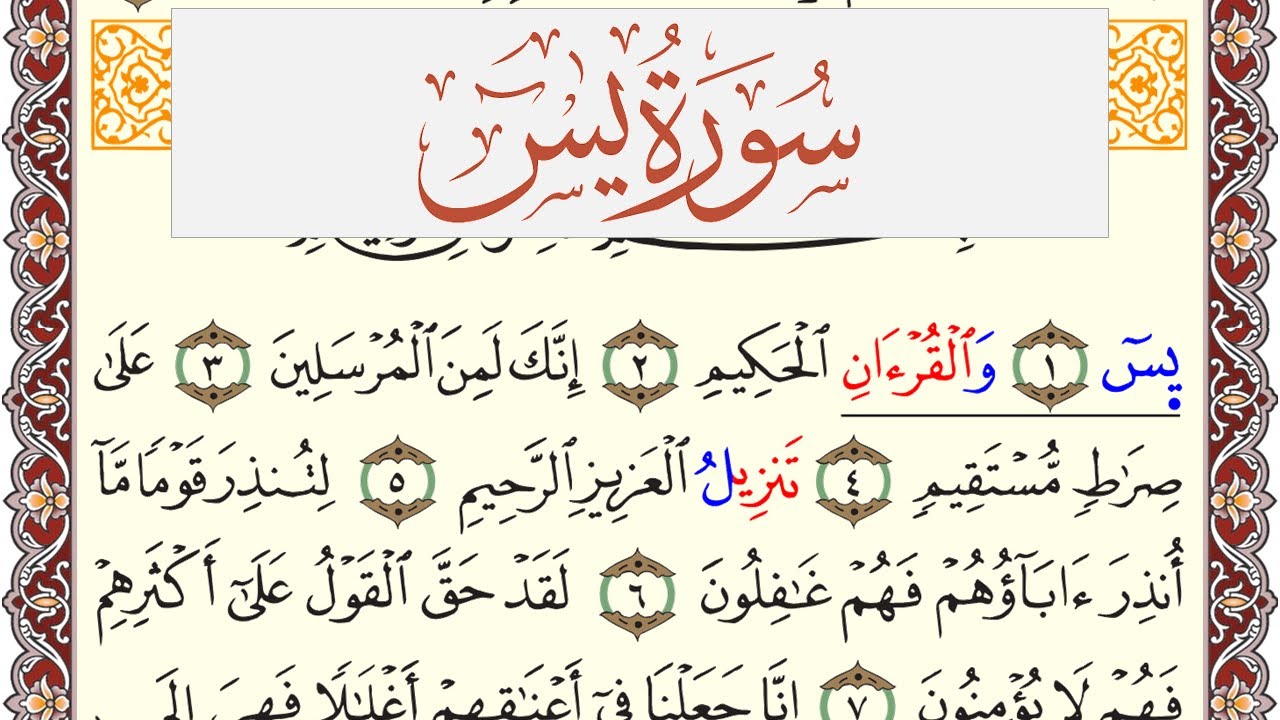 سُورَةُ يسٓ
يسٓ ١ وَٱلْقُرْءَانِ ٱلْحَكِيمِ ٢ إِنَّكَ لَمِنَ ٱلْمُرْسَلِينَ ٣ عَلَىٰ
صِرَٰطٍ مُّسْتَقِيمٍ ٤ تَنزِيلُ ٱلْعَزِيزِ ٱلرَّحِيمِ ٥ لِتُنذِرَ قَوْمًا مَّآ
أُنذِرَ ءَابَآؤُهُمْ فَهُمْ غَٰفِلُونَ ٦ لَقَدْ حَقَّ ٱلْقَوْلُ عَلَىٰٓ أَكْثَرِهِمْ
فَهُمْ لَا يُؤْمِنُونَ ٧ إِنَّا جَعَلْنَا فِىٓ أَعْنَٰقِهِمْ أَغْلَٰلًا فَهِىَ إِلَى